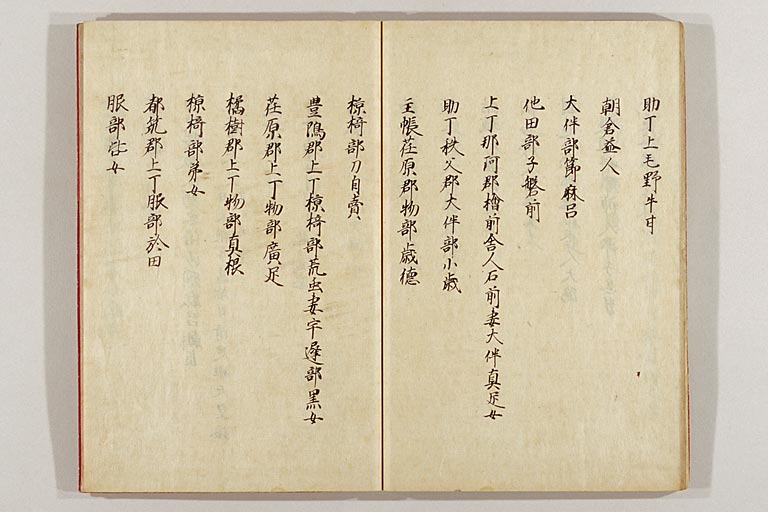 助丁上毛野牛甘
朝倉益人
大伴部節麻呂
他田部子磐前
上丁那珂郡檜前舎人石前妻大伴真足女
助丁秩父郡大伴部小歳
主帳荏原郡物部歳徳
椋椅部刀自賣
豊嶋郡上丁椋椅部荒虫妻宇遅部黒女
荏原郡上丁物部廣足
橘樹郡上丁物部真根
椋椅部弟女
都筑郡上丁服部於田
服部呰女